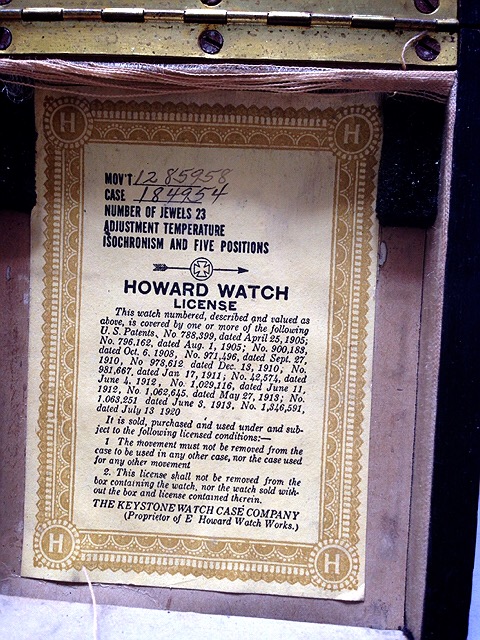 H H
MOV'T 1285958
CASE 184954
NUMBER OF JEWELS 23
ADJUSTMENT TEMPERATURE
ISOCHRONISM AND FIVE POSITIONS
HOWARD WATCH
LICENSE
This watch numbered, described and valued as
above, is covered by one or more of the following
U. S. Patents, No. 788,399, dated April 25, 1905;
No. 796,162, dated Aug. 1, 1905; No. 900,183,
dated Oct. 6, 1908, No. 971,496, dated Sept. 27,
1910, No 978,612 dated Dec. 13, 1910, No.
981,667, dated Jan 17, 1911; No. 42,574, dated
June 4, 1912, No. 1,029,116, dated June 11,
1912, No. 1,062,645, dated May 27, 1913; No.
1,063,251 dated June 3, 1913, No. 1,346,591,
dated July 13 1920
It is sold, purchased and used under and sub-
ject to the following licensed conditions:—
1 The movement must not be removed from the
case to be used in any other case, nor the case used
for any other movement
2. This license shall not be removed from the
box containing the watch, nor the watch sold with-
out the box and license contained therein.
THE KEYSTONE WATCH CASE COMPANY
(Proprietor of E Howard Watch Works.)
H H